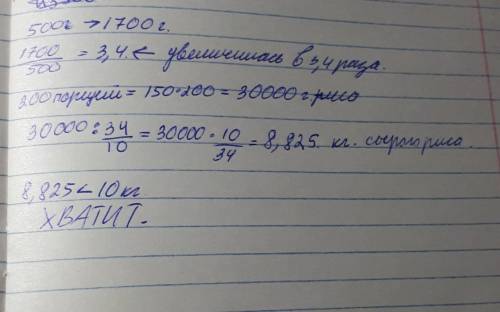 500г → 1700 г.
1700/500 = 3,4. ← увеличилась в 3,4 раза.
200 порций = 150 · 200 = 30000 г. риса
30000 : 34/10 = 30000 · 10/34 = 8,825. кг. сырого риса.
8,825 < 10 кг
ХВАТИТ.